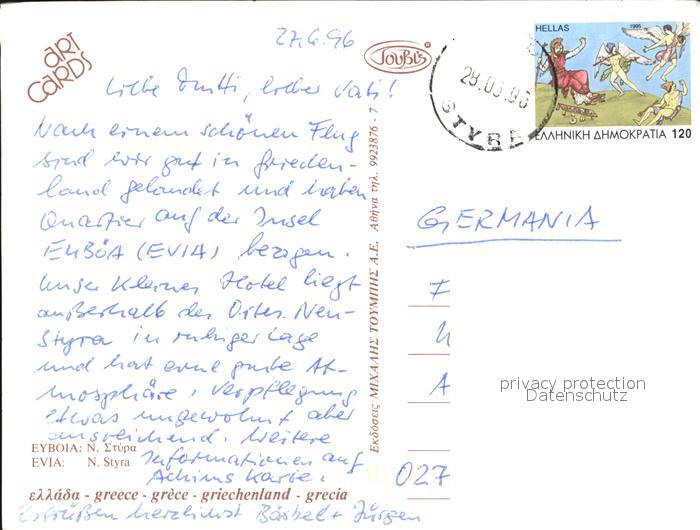 27.6.96
ART
CARDS
Toubis
HELLAS
1995
28.06.96
STYRA
ΕΛΛΗΝΙΚΗ ΔΗΜΟΚΡΑΤΙΑ 120
Liebe Mutti, lieber Vati!
Nach einem schönen Flug
sind wir gut in Griechen-
land gelandet und haben
Quartier auf der Insel
EUBÖA (EVIA) bezogen.
Unser kleines Hotel liegt
außerhalb des Ortes Neu-
Styra in ruhiger Lage
und hat eine gute At-
mosphäre, Verpflegung
etwas ungewohnt aber
ausreichend. Weitere
Informationen auf
Achims Karte.
ΕΥΒΟΙΑ: Ν. Στύρα
EVIA: N. Styra
ελλάδα - greece - grèce - griechenland - grecia
Es grüßen herzlichst Bärbel + Jürgen
Εκδόσεις ΜΙΧΑΛΗΣ ΤΟΥΜΠΗΣ Α.Ε. Αθήνα τηλ. 9923876 - 7
GERMANIA
027
privacy protection
Datenschutz